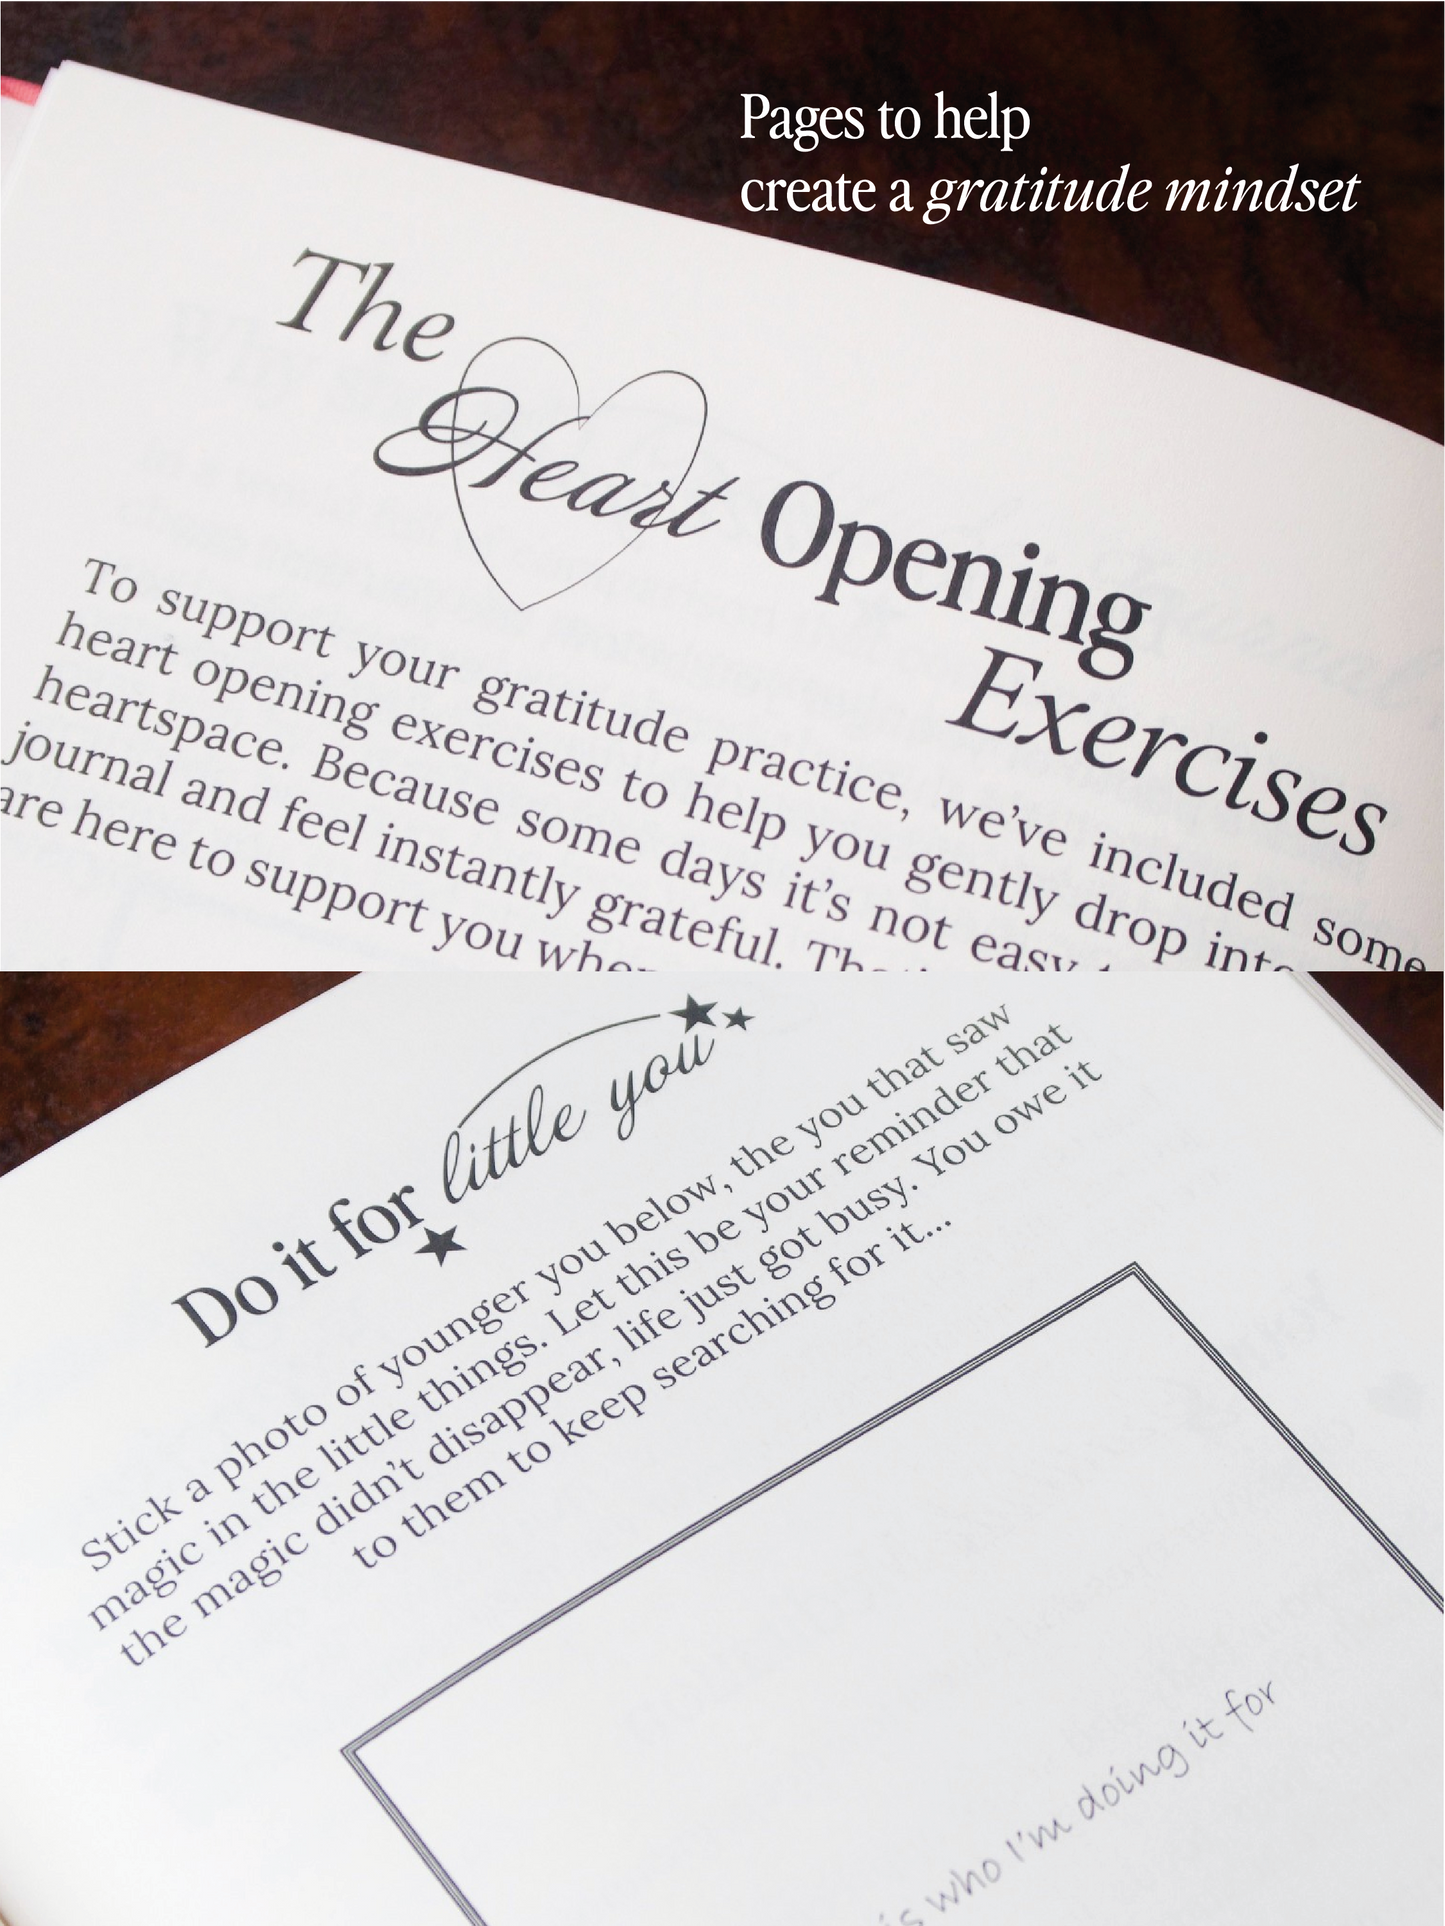 Pages to help
create a gratitude mindset
The
Heart Opening
Exercises
To support your gratitude practice, we've included some
heart opening exercises to help you gently drop into
heartspace. Because some days it's not easy
journal and feel instantly grateful.
are here to support you
Do it for little you
Stick a photo of younger you below, the you that saw
magic in the little things. Let this be your reminder that
the magic didn't disappear, life just got busy. You owe it
to them to keep searching for it...
who I'm doing it for